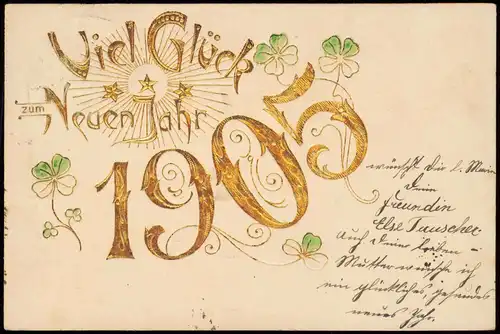 Viel Glück
zum
Neuen Jahr
1905
wünscht Dir l. Marie
Dein
Freundin
Else Tauscher.
Auch Deiner lieben
Mutter wünsche ich
ein glückliches gesundes
neues Jahr.